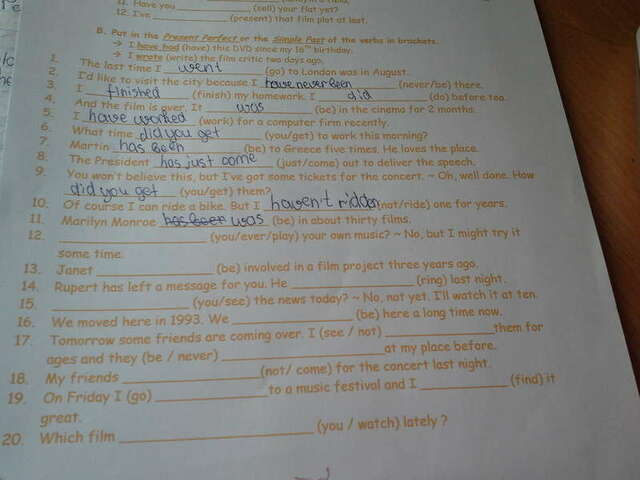 11. Have you ________ (sell) your flat yet?
12. I've ________ (present) that film plot at last.
B. Put in the Present Perfect or the Simple Past of the verbs in brackets.
→ I have had (have) this DVD since my 16th birthday.
→ I wrote (write) the film critic two days ago.
1. The last time I went (go) to London was in August.
2. I'd like to visit the city because I have never been (never/be) there.
3. I finished (finish) my homework. I did (do) before tea.
4. And the film is over. It was (be) in the cinema for 2 months.
5. I have worked (work) for a computer firm recently.
6. What time did you get (you/get) to work this morning?
7. Martin has been (be) to Greece five times. He loves the place.
8. The President has just come (just/come) out to deliver the speech.
9. You won't believe this, but I've got some tickets for the concert. ~ Oh, well done. How
did you get (you/get) them?
10. Of course I can ride a bike. But I haven't ridden (not/ride) one for years.
11. Marilyn Monroe has been was (be) in about thirty films.
12. ________ (you/ever/play) your own music? ~ No, but I might try it
some time.
13. Janet ________ (be) involved in a film project three years ago.
14. Rupert has left a message for you. He ________ (ring) last night.
15. ________ (you/see) the news today? ~ No, not yet. I'll watch it at ten.
16. We moved here in 1993. We ________ (be) here a long time now.
17. Tomorrow some friends are coming over. I (see / not) ________ them for
ages and they (be / never) ________ at my place before.
18. My friends ________ (not/ come) for the concert last night.
19. On Friday I (go) ________ to a music festival and I ________ (find) it
great.
20. Which film ________ (you / watch) lately ?